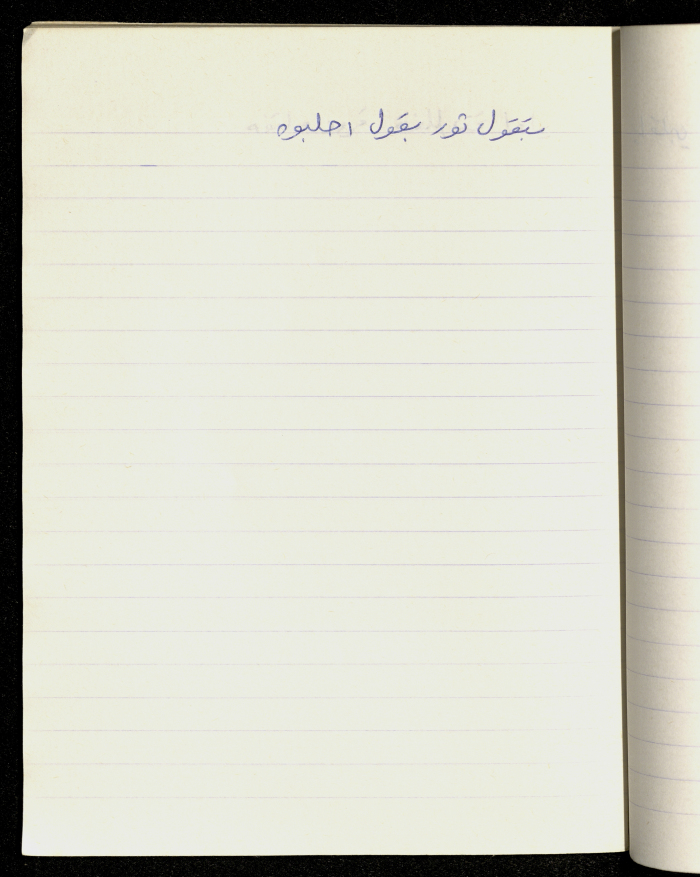 بتقول تور بقول احلبوه